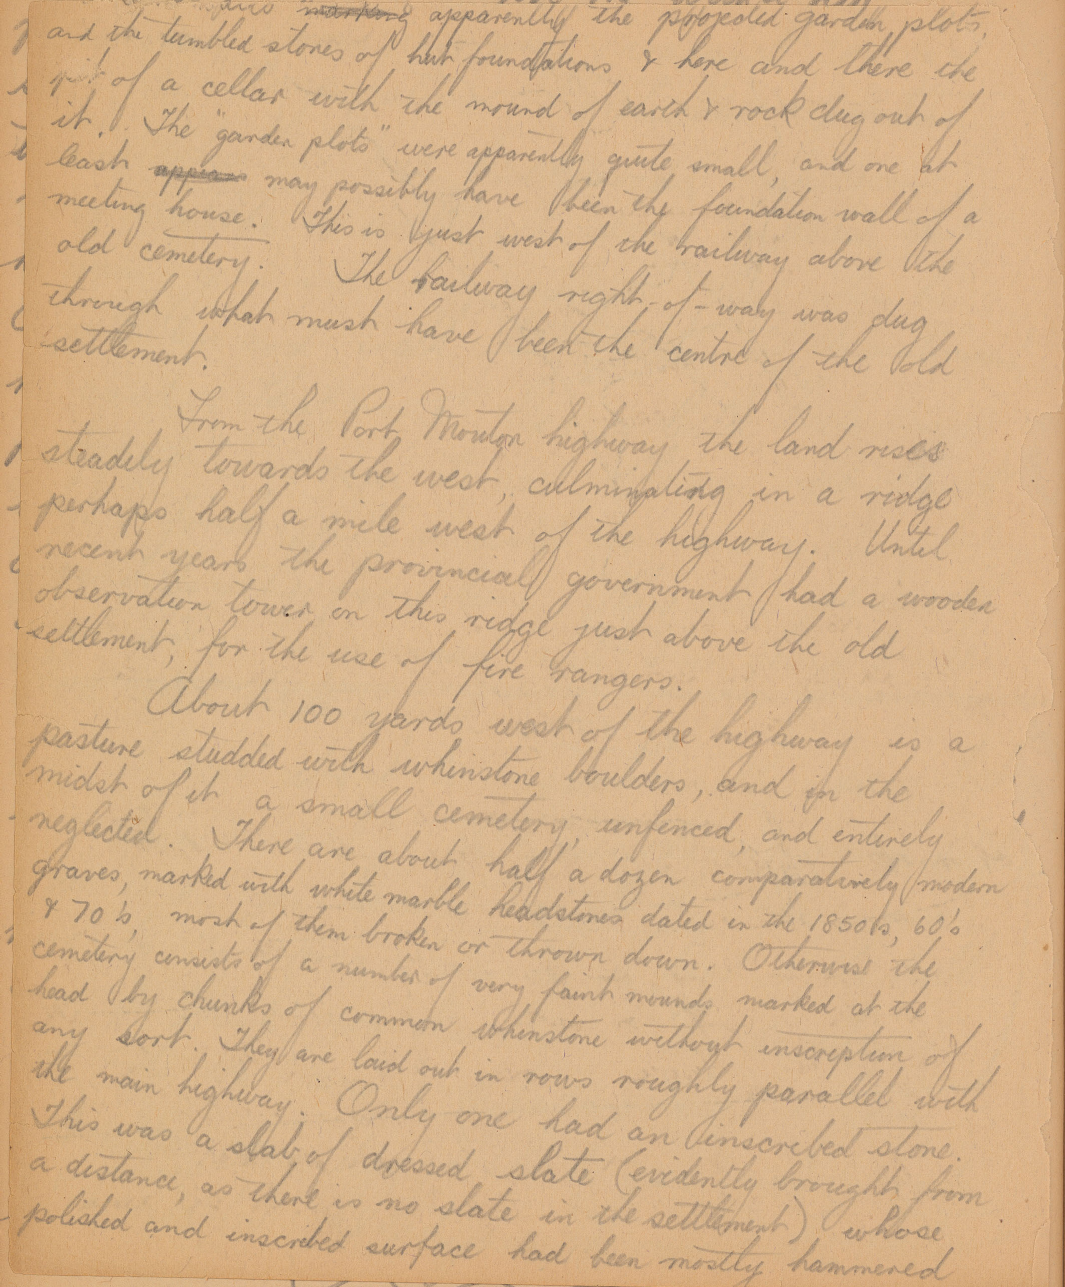 marking apparently the projected garden plots,
and the tumbled stones of hut foundations & here and there the
pit of a cellar with the mound of earth & rock dug out of
it. The "garden plots" were apparently quite small, and one at
least appears may possibly have been the foundation wall of a
meeting house. This is just west of the railway above the
old cemetery. The railway right-of-way was dug
through what must have been the centre of the old
settlement.
From the Port Mouton highway the land rises
steadily towards the west, culminating in a ridge
perhaps half a mile west of the highway. Until
recent years the provincial government had a wooden
observation tower on this ridge just above the old
settlement, for the use of fire rangers.
About 100 yards west of the highway is a
pasture studded with whinstone boulders, and in the
midst of it a small cemetery, unfenced, and entirely
neglected. There are about half a dozen comparatively modern
graves, marked with white marble headstones dated in the 1850's, 60's
& 70's, most of them broken or thrown down. Otherwise the
cemetery consists of a number of very faint mounds marked at the
head by chunks of common whinstone without inscription of
any sort. They are laid out in rows roughly parallel with
the main highway. Only one had an inscribed stone.
This was a slab of dressed slate (evidently brought from
a distance, as there is no slate in the settlement) whose
polished and inscribed surface had been mostly hammered